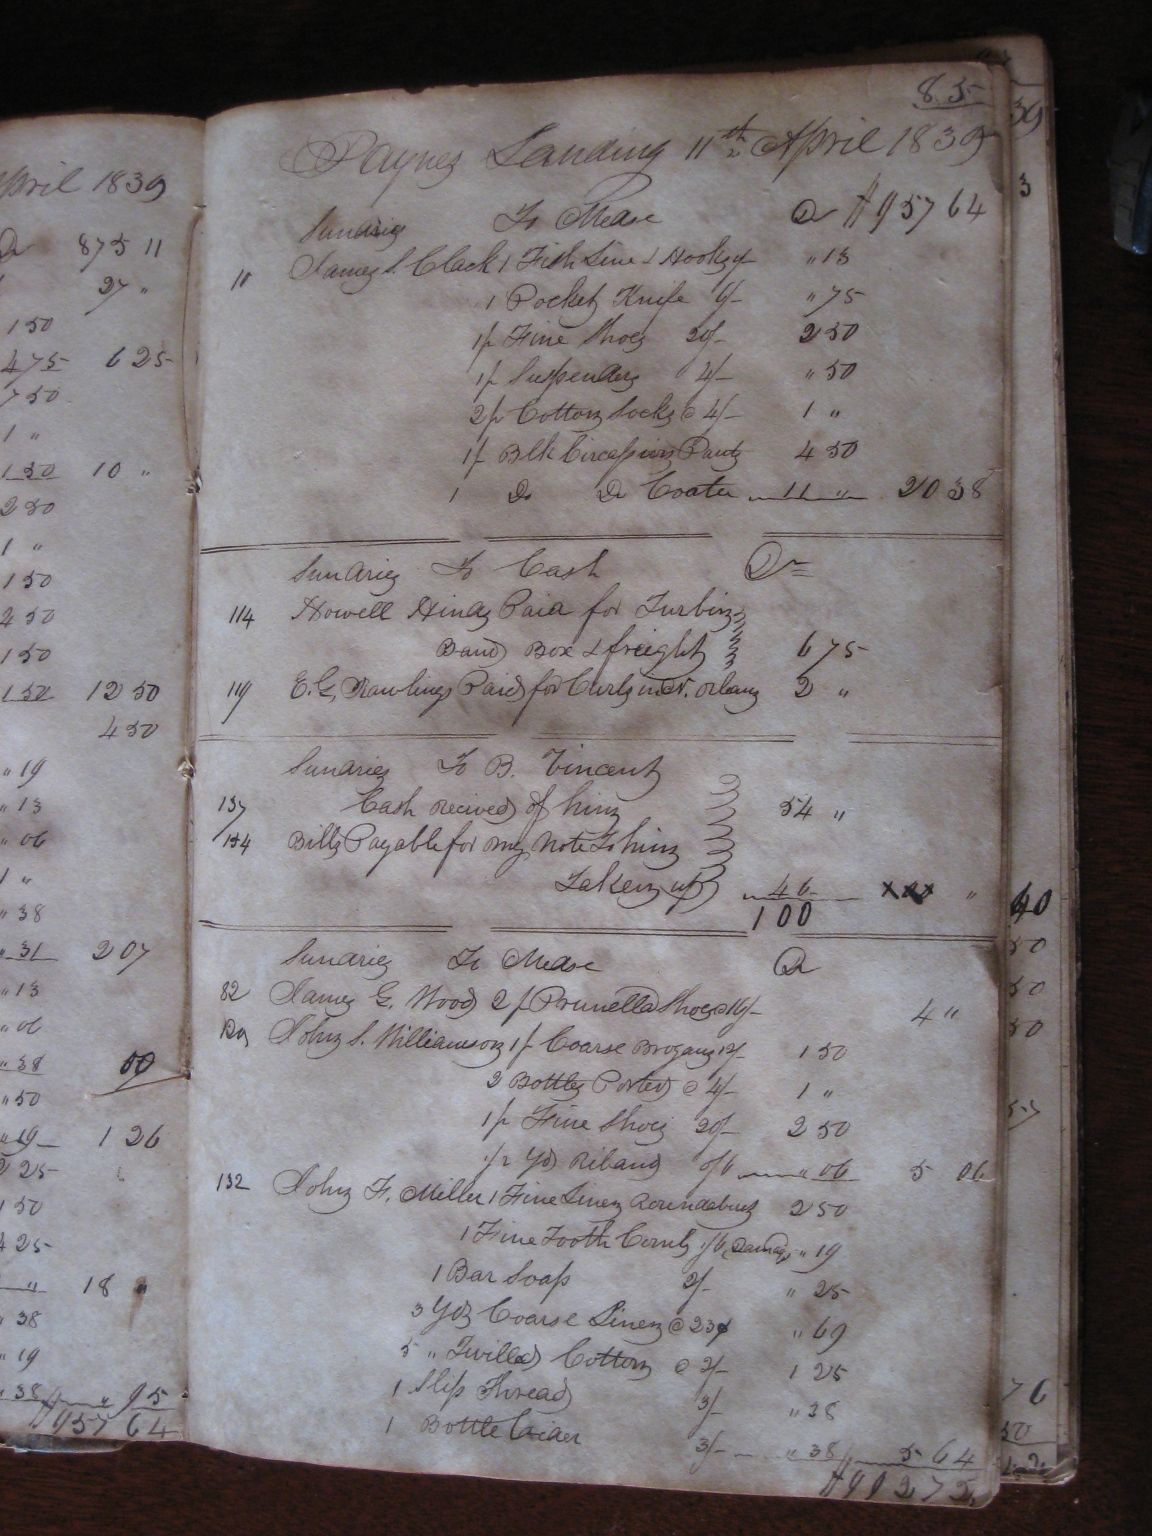 April 1839
875 11
27 "
1 50
4 75 6 25
7 50
1 "
1 50 10 "
2 50
1 "
1 50
2 50
1 50
1 50 12 50
4 50
" 19
" 13
" 06
1 "
" 38
" 31 2 07
" 13
" 06
" 38 50
" 50
" 19 1 26
2 25
1 50
4 25
" 18 "
" 38
" 19
" 38 " 95
$957 64
85
Paynes Landing 11th April 1839
Sundries To Mdse Dr $957 64
11 James S. Clack 1 Fish Line & Hooks 1/- " 13
1 Pocket Knife 6/- " 75
1 p Fine Shoes 20/- 2 50
1 p Suspenders 4/- " 50
2 p Cotton Socks @ 4/- 1 "
1 p Blk Circassian Pants 4 50
1 Do Do Coatee 11 " 20 38
Sundries To Cash Dr
114 Howell Hinds Paid for Turbin
Band Box & freight 6 75
119 E. G. Rawlings Paid for Curls in N. Orleans 2 "
Sundries To B. Vincent
137 Cash recived of him 54 "
134 Bills Payable for my Note To him
Taken up 46 xxx "
100
Sundries To Mdse Dr
82 James G. Wood 2 p Prunella Shoes @ 16/- 4 "
129 John S. Williamson 1 p Coarse Brogans 12/- 1 50
2 Bottles Porter @ 4/- 1 "
1 p Fine Shoes 20/- 2 50
1/2 Yd Riband 0/6 " 06 5 06
132 John F. Miller 1 Fine Linen Roundabout 2 50
1 Fine Tooth Comb 1/6 Damag " 19
1 Bar Soap 2/- " 25
3 Yds Coarse Linen @ 23¢ " 69
5 " Twilled Cotton @ 2/- 1 25
1 Slip Thread 3/- " 38
1 Bottle Cider 3/- " 38 5 64
39
3
40
50
50
50
76
50